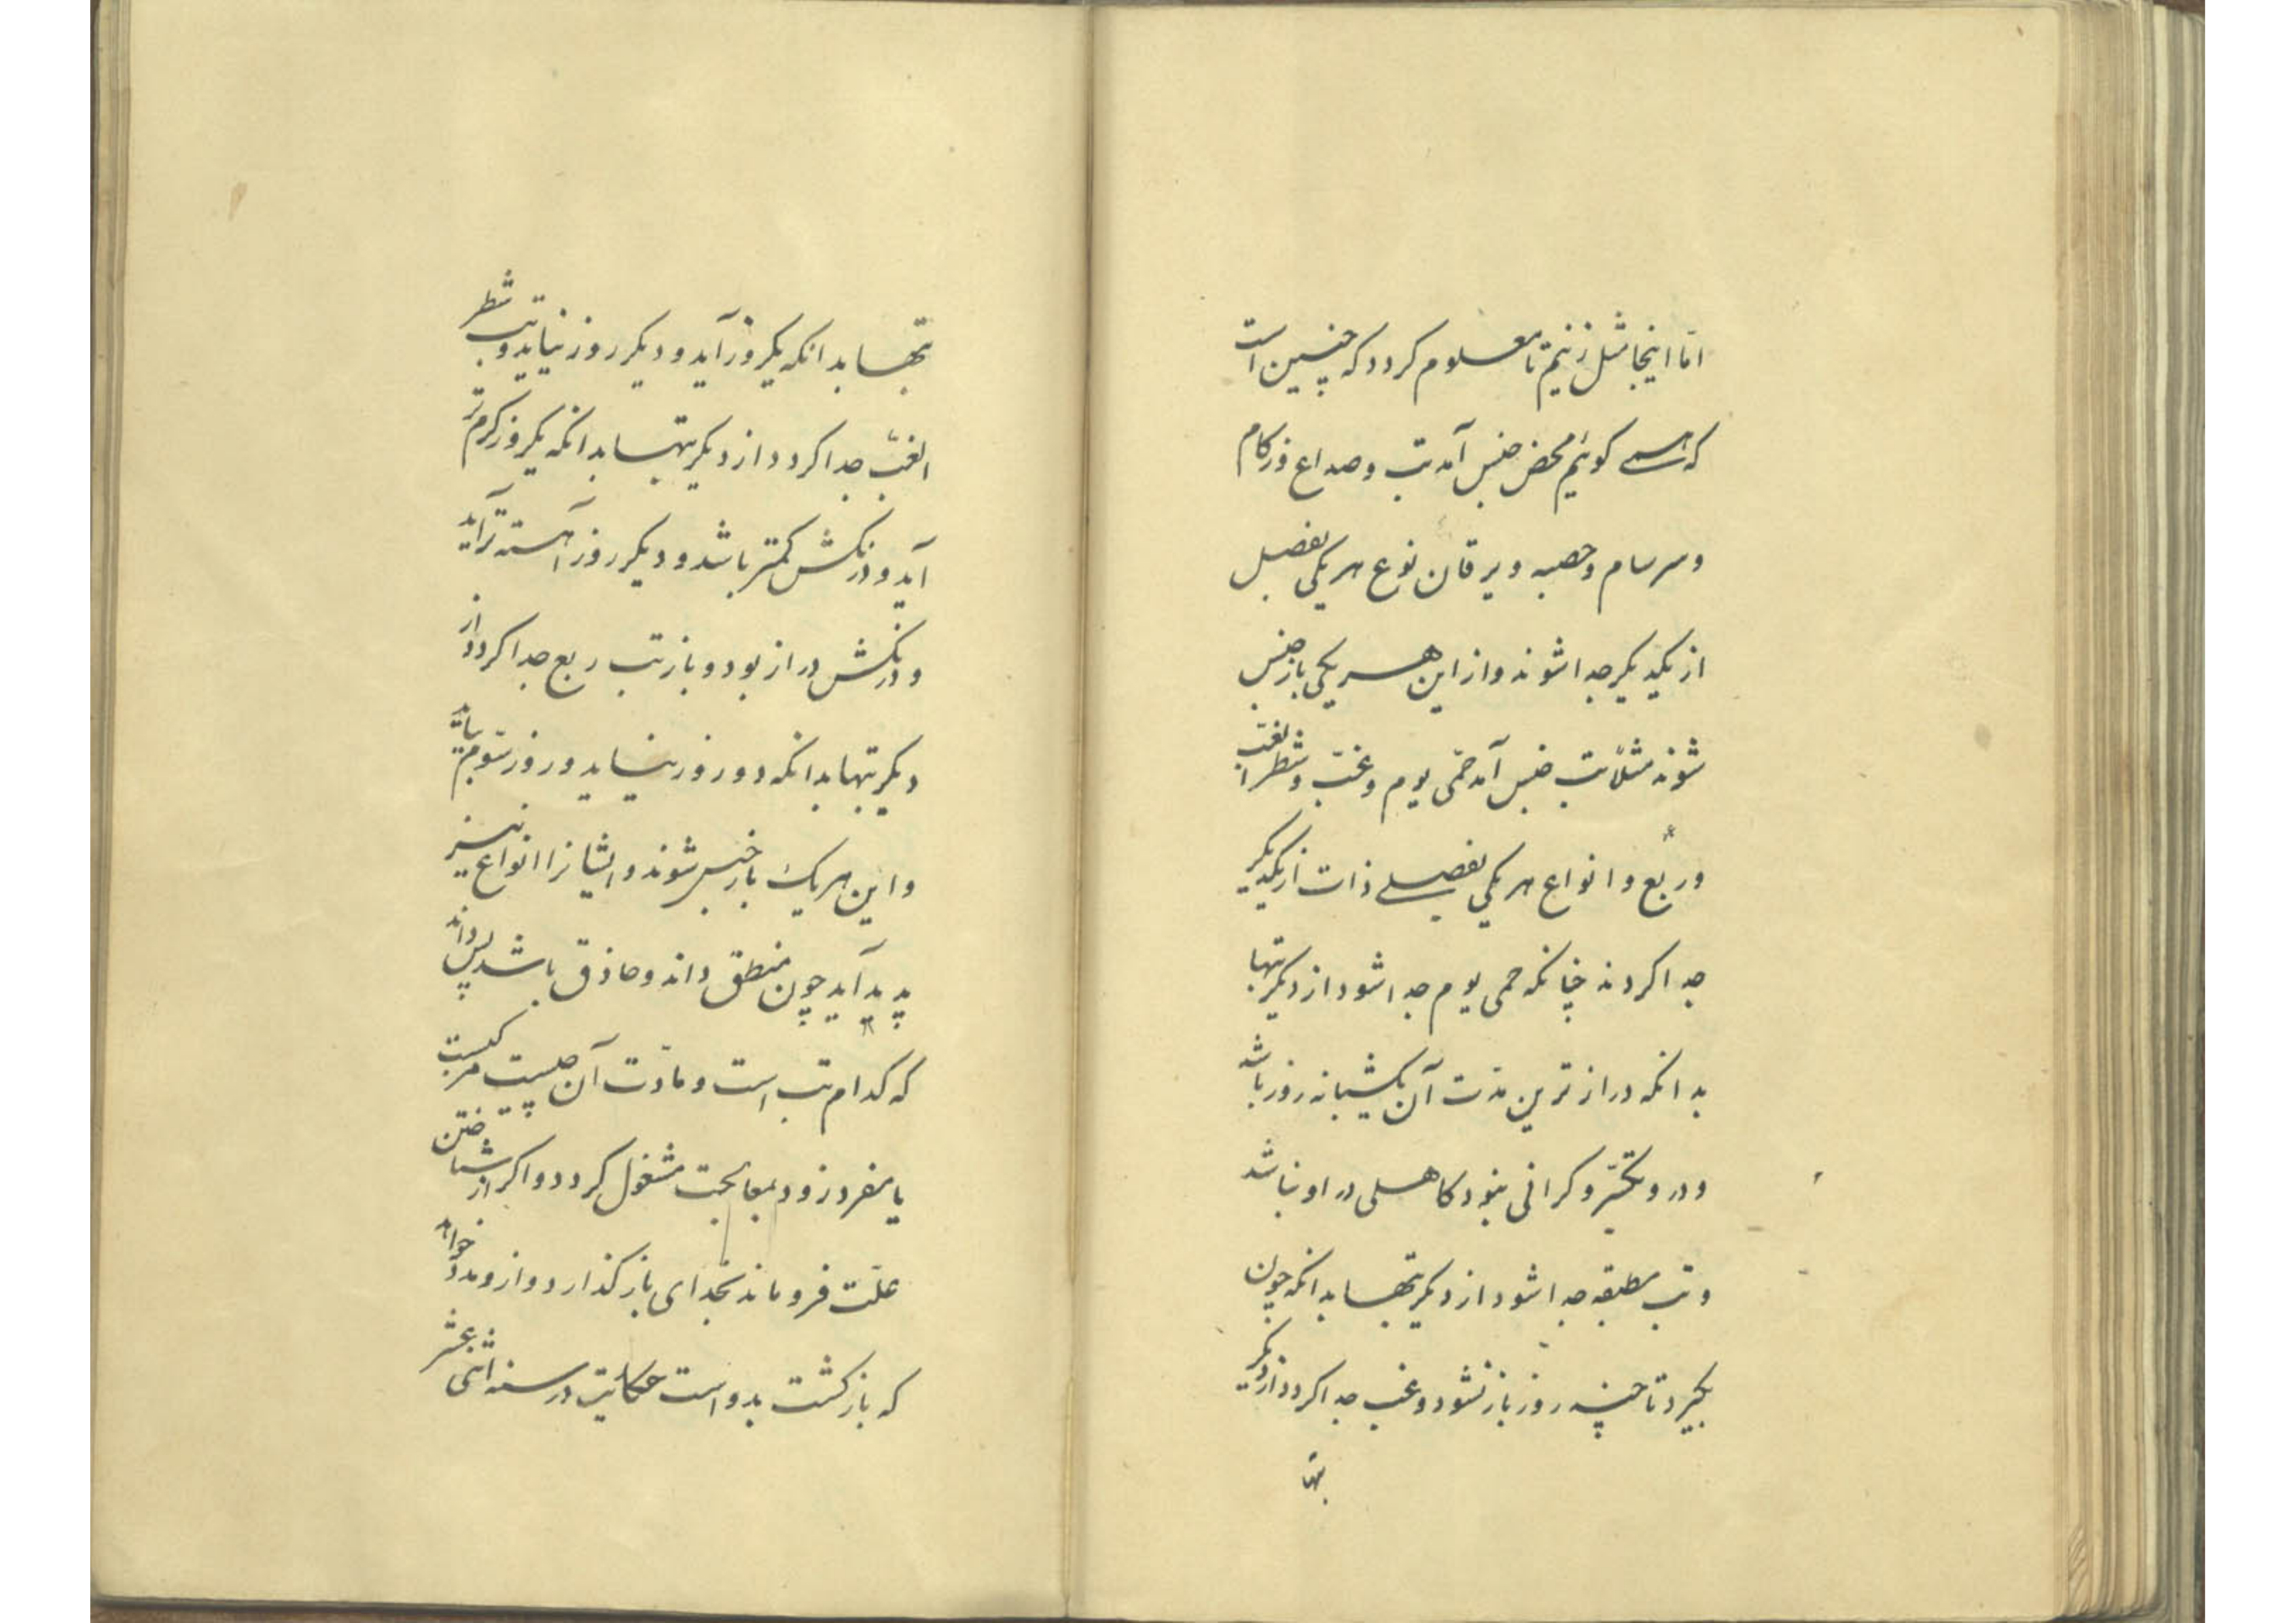 اما اینجا مثل زنیم تا معلوم کردد که چنین است
که همی کوئیم محض جنس آمد تب و صداع و زکام
و سرسام و حصبه و یرقان نوع هر یکی بفصل
از یکدیکر جدا شوند و از این هر یکی باز جنس
شوند مثلا تب جنس آمد حمّی یوم و غبّ و شطر الغبّ
و ربع و انواع هر یکی بفصلی ذات از یکدیکر
جدا کردند چنانکه حمی یوم جدا شود از دیکر تبها
بدانکه درازترین مدّت آن یکشبانه روز باشد
و در و تکسّر و کرانی نبود کاهلی در او نباشد
و تب مطبقه جدا شود از دیکر تبها بدانکه چون
بکیرد تا چند روز باز نشود و غب جدا کردد از دیکر
تبها
تبها بدانکه یکروز آید و دیکر روز نیاید و تب شطر
الغبّ جدا کردد از دیکر تبها بدانکه یکروز کرم تر
آید و درنکش کمتر باشد و دیکر روز آهسته تر آید
و درنکش دراز بود و باز تب ربع جدا کردد از
دیکر تبها بدانکه دو روز نیاید و روز سوّم بیاید
و این هر یک باز جنس شوند و ایشانرا انواع نیز
پدید آید چون منطق داند و حاذق باشد پس داند
که کدام تب است و مادّت آن چیست مرکبست
یا مفرد زود بمعالجت مشغول کردد و اکر از شناختن
علّت فرو ماند بخدای باز کذارد و ازو مدد خواهد
که بازکشت بدو است حکایت در سنه اثنی عشر